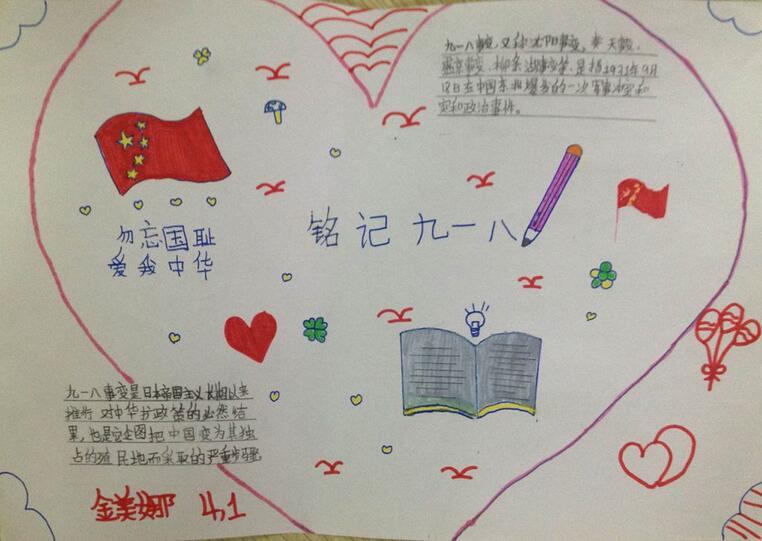 九一八事变,又称沈阳事变、奉天事变、
盛京事变、柳条湖事变等,是指1931年9月
18日在中国东北爆发的一次军事冲突和
突和政治事件。
铭记九一八
勿忘国耻
爱我中华
九一八事变是日本帝国主义长期以来
推行对华扩政策的必然结
果,也是企图把中国变为其独
占的殖民地而采取的严重步骤
金美娜 4,1